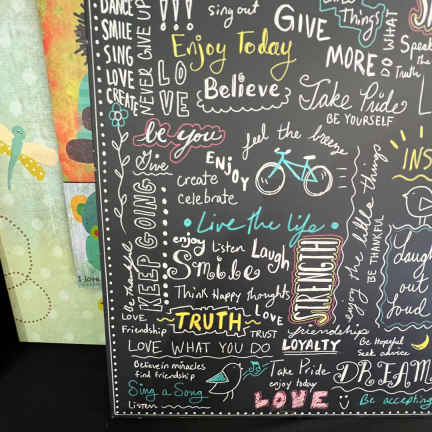 DANCE
SMILE
SING
LOVE
CREATE
NEVER GIVE UP
!!!
sing out
GIVE
Things
DO WHAT
Speak
the
Truth
Enjoy Today
MORE
LOVE
Believe
Take Pride
BE YOURSELF
be you
feel the breeze
INS
Give
ENJOY
create
celebrate
KEEP GOING
Live the life
enjoy the little things
BE THANKFUL
enjoy
Listen
Laugh
Smile
STRENGTH
Laugh
out
Loud
Think Happy thoughts
be thankful
I love
LOVE
Friendship
TRUTH
LOVE
TRUST
friendship
LOVE WHAT YOU DO
LOYALTY
Be Hopeful
Seek advice
Believe in miracles
find friendship
Take Pride
enjoy today
DREAM
Sing a Song
Listen
LOVE
Be accepting